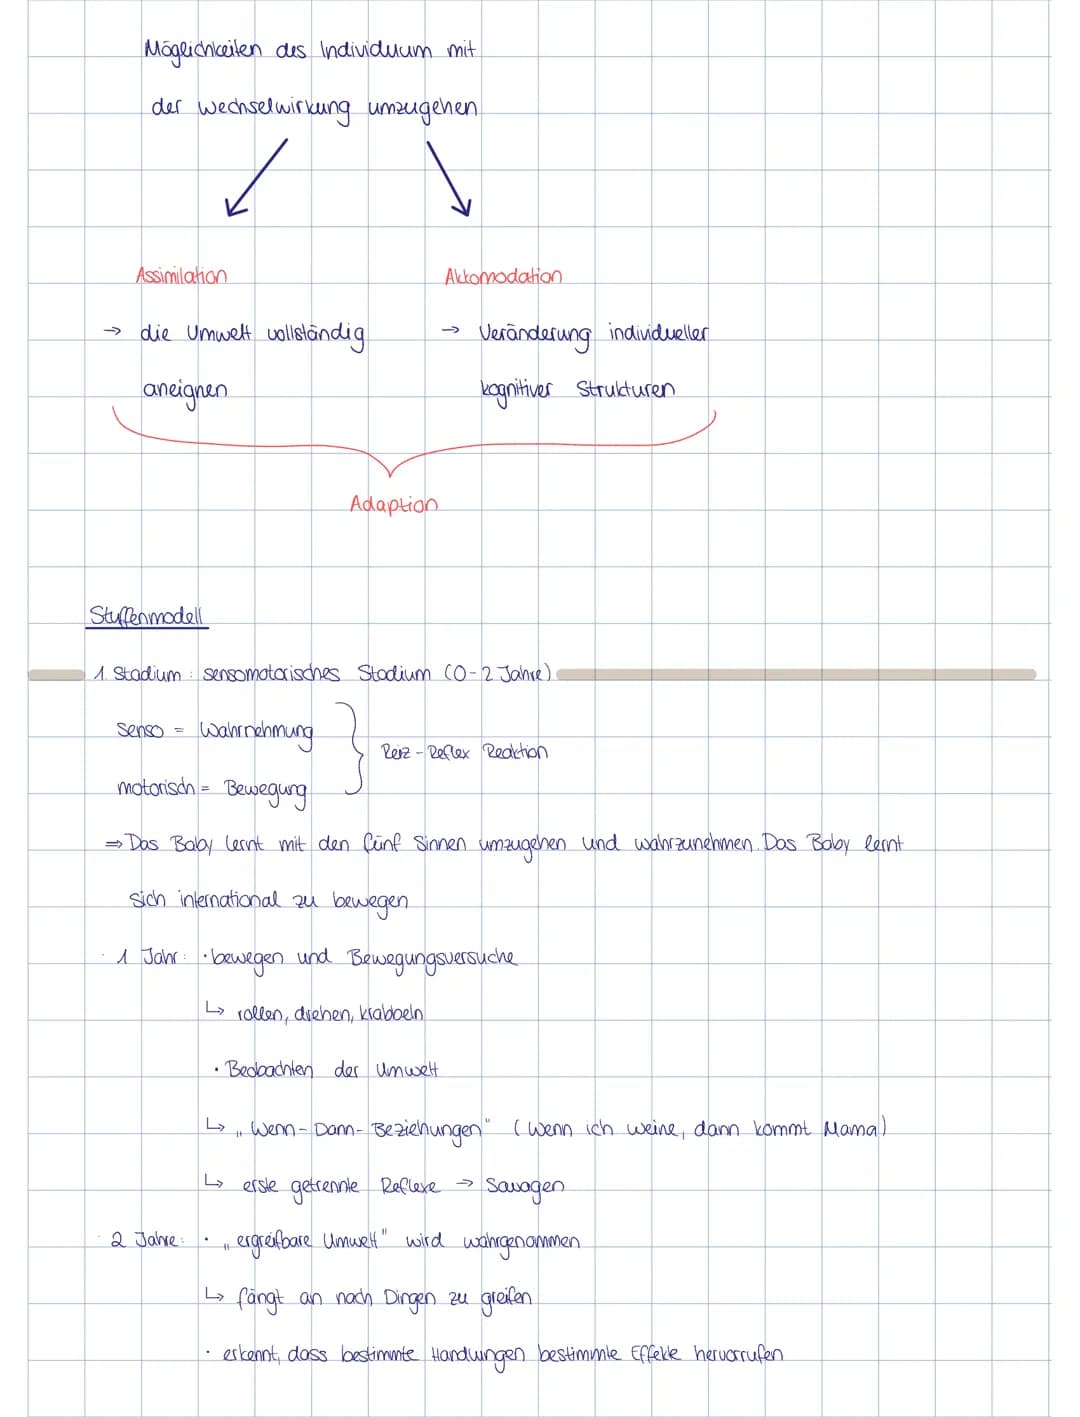 Möglichkeiten des Individuum mit
der Wechselwirkung umzugehen
Assimilation
Akkomodation
→ die Umwelt vollständig
→ Veränderung individueller
aneignen
kognitiver Strukturen
Adaption
Stuffenmodell
1. Stadium : sensomotorisches Stadium (0-2 Jahre)
senso = Wahrnehmung
Reiz - Reflex Reaktion
motorisch = Bewegung
⇒ Das Baby lernt mit den fünf Sinnen umzugehen und wahrzunehmen. Das Baby lernt
sich international zu bewegen
· 1 Jahr: · bewegen und Bewegungsversuche
↳ rollen, drehen, krabbeln
· Beobachten der Umwelt
↳ „Wenn-Dann-Beziehungen" (Wenn ich weine, dann kommt Mama)
↳ erste getrennte Reflexe → Saugen
· 2 Jahre: · „ergreifbare Umwelt" wird wahrgenommen
↳ fängt an nach Dingen zu greifen
· erkennt, dass bestimmte Handlungen bestimmte Effekte hervorrufen